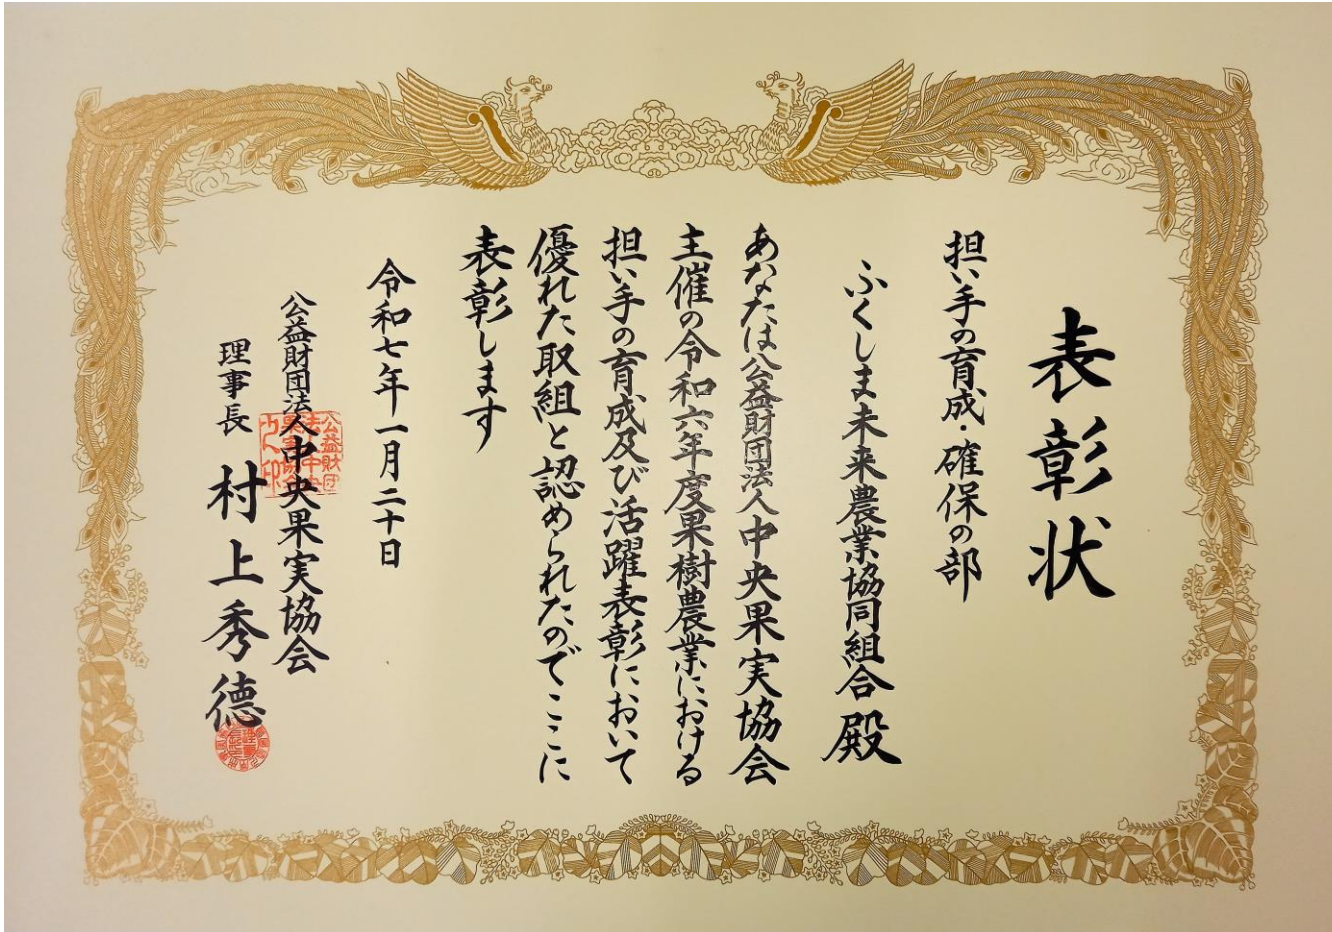 表彰状
担い手の育成・確保の部
ふくしま未来農業協同組合殿
あなたは公益財団法人中央果実協会
主催の令和六年度果樹農業における
担い手の育成及び活躍表彰において
優れた取組と認められたのでここに
表彰します
令和七年一月二十日
公益財団法人中央果実協会
理事長 村上秀德